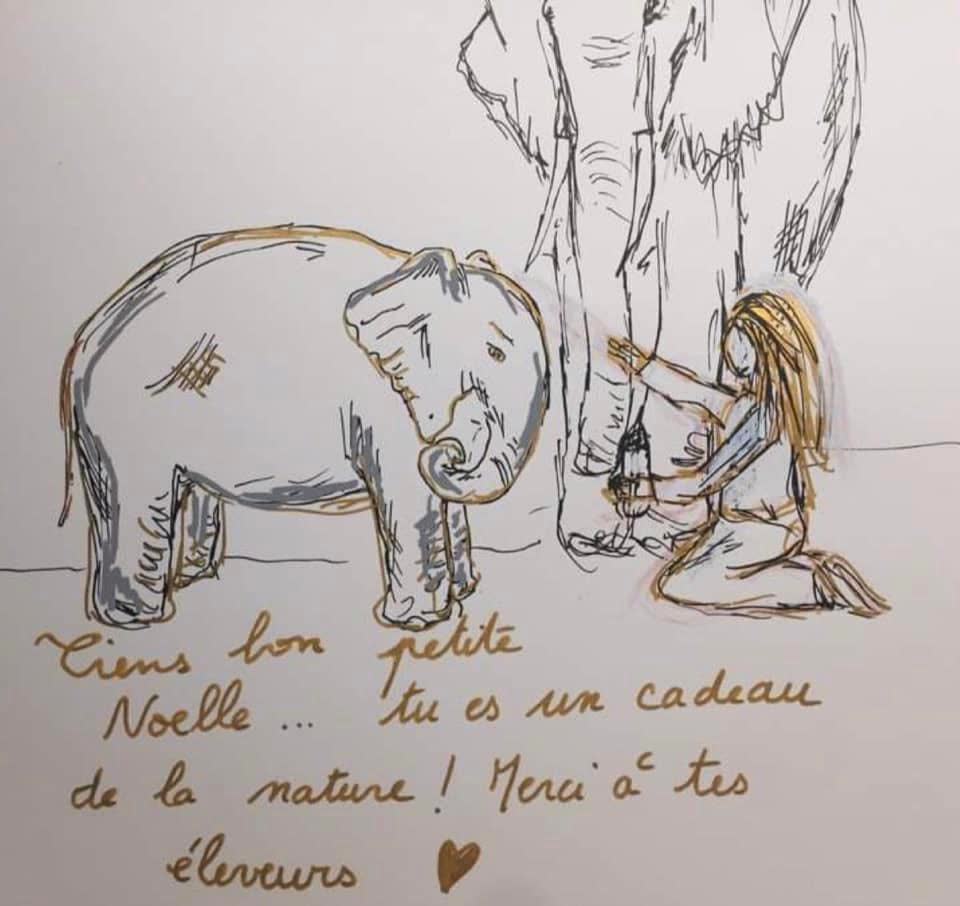 Tiens bon petite
Noelle ... tu es un cadeau
de la nature ! Merci à tes
éleveurs ♥